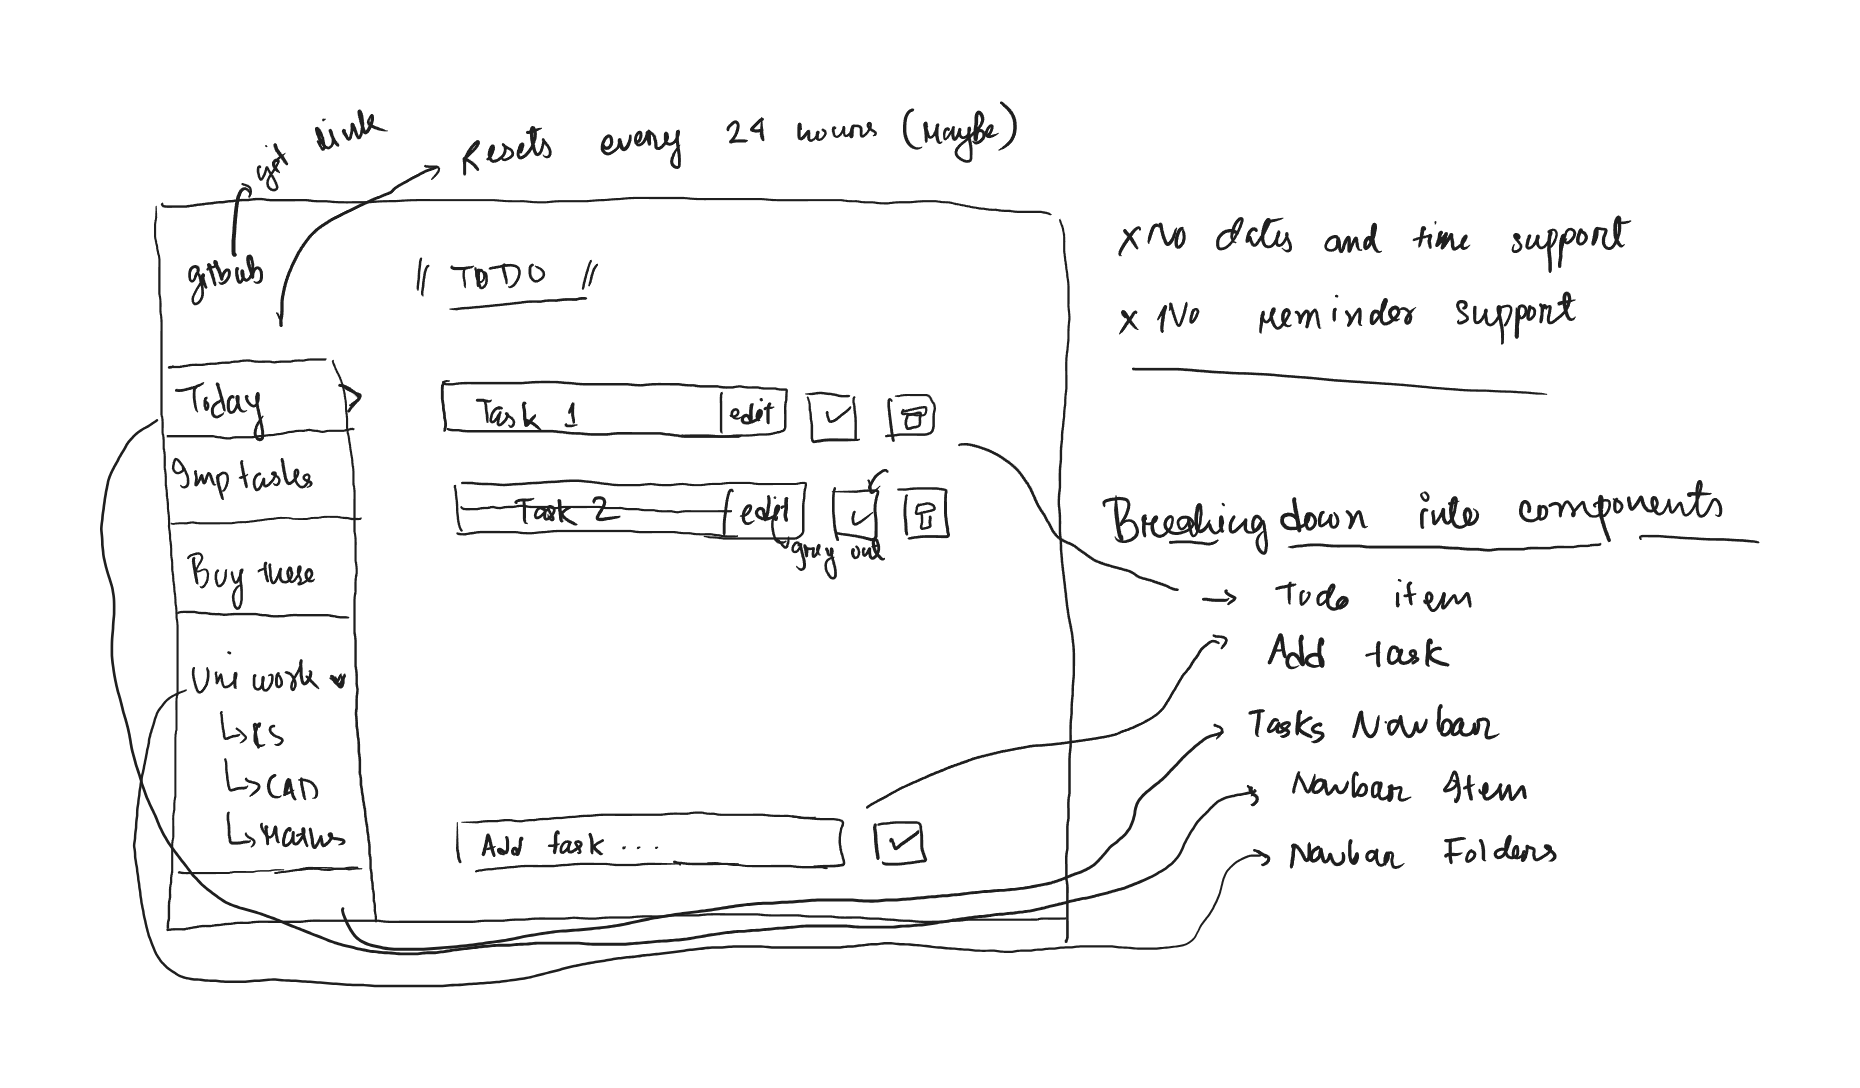 git link
Resets every 24 hours (Maybe)
github
// TODO //
Today
Imp tasks
Buy these
Uni work
CS
CAD
Maths
Task 1 edit
Task 2 edit
grey out
Add task ...
x No dates and time support
x No reminder support
Breaking down into components
→ Todo item
Add task
Tasks Navbar
Navbar Item
Navbar Folders